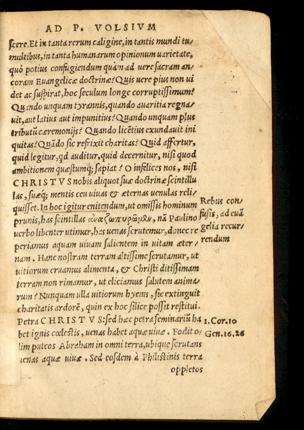 AD P. VOLSIVM
scere. Et in tanta rerum caligine, in tantis mundi tu=
multibus, in tanta humanarum opinionum uarietate,
quò potius confugiendum quàm ad uere sacram an=
coram Euangelicæ doctrinæ? Quis uere pius non ui
det ac suspirat, hoc seculum longe corruptissimum?
Quando unquam tyrannis, quando auaritia regna=
uit, aut latius aut impunitius? Quando unquam plus
tributũ cæremonijs? Quando licētius exundauit ini
quitas? Quãdo sic refrixit charitas? Quid affertur,
quid legitur, qd auditur, quid decernitur, nisi quod
ambitionem quæstumq; sapiat? O infelices nos, nisi
CHRISTVS nobis aliquot suæ doctrinæ scintillu
las, suæq; mentis ceu uiuas & æternas uenulas reli=
quisset. In hoc igitur enitendum, ut omissis hominum
prunis, has scintillas ἀναζωπυρῶμεν, nã Paulino
uerbo libenter utimur, has uenas scrutemur, donec re
periamus aquam uiuam salientem in uitam æter
nam. Hanc nostram terram altissime scrutamur, ut
uitiorum eruamus alimenta, & Christi ditissimam
terram non rimamur, ut eliciamus salutem anima=
rum? Nunquam ulla uitiorum hyems, sic extinguit
charitatis ardorē, quin ex hoc silice possit restitui.
Petra CHRISTVS: sed hæc petra seminariũ ha
bet ignis cœlestis, uenas habet aquæ uiuæ. Fodit o=
lim puteos Abraham in omni terra, ubique scrutans
uenas aquæ uiuæ. Sed eosdem à Philistinis terra
oppletos
Rebus con
fusis, ad euã
gelia recur=
rendum
1. Cor. 10
Gen. 16. 26